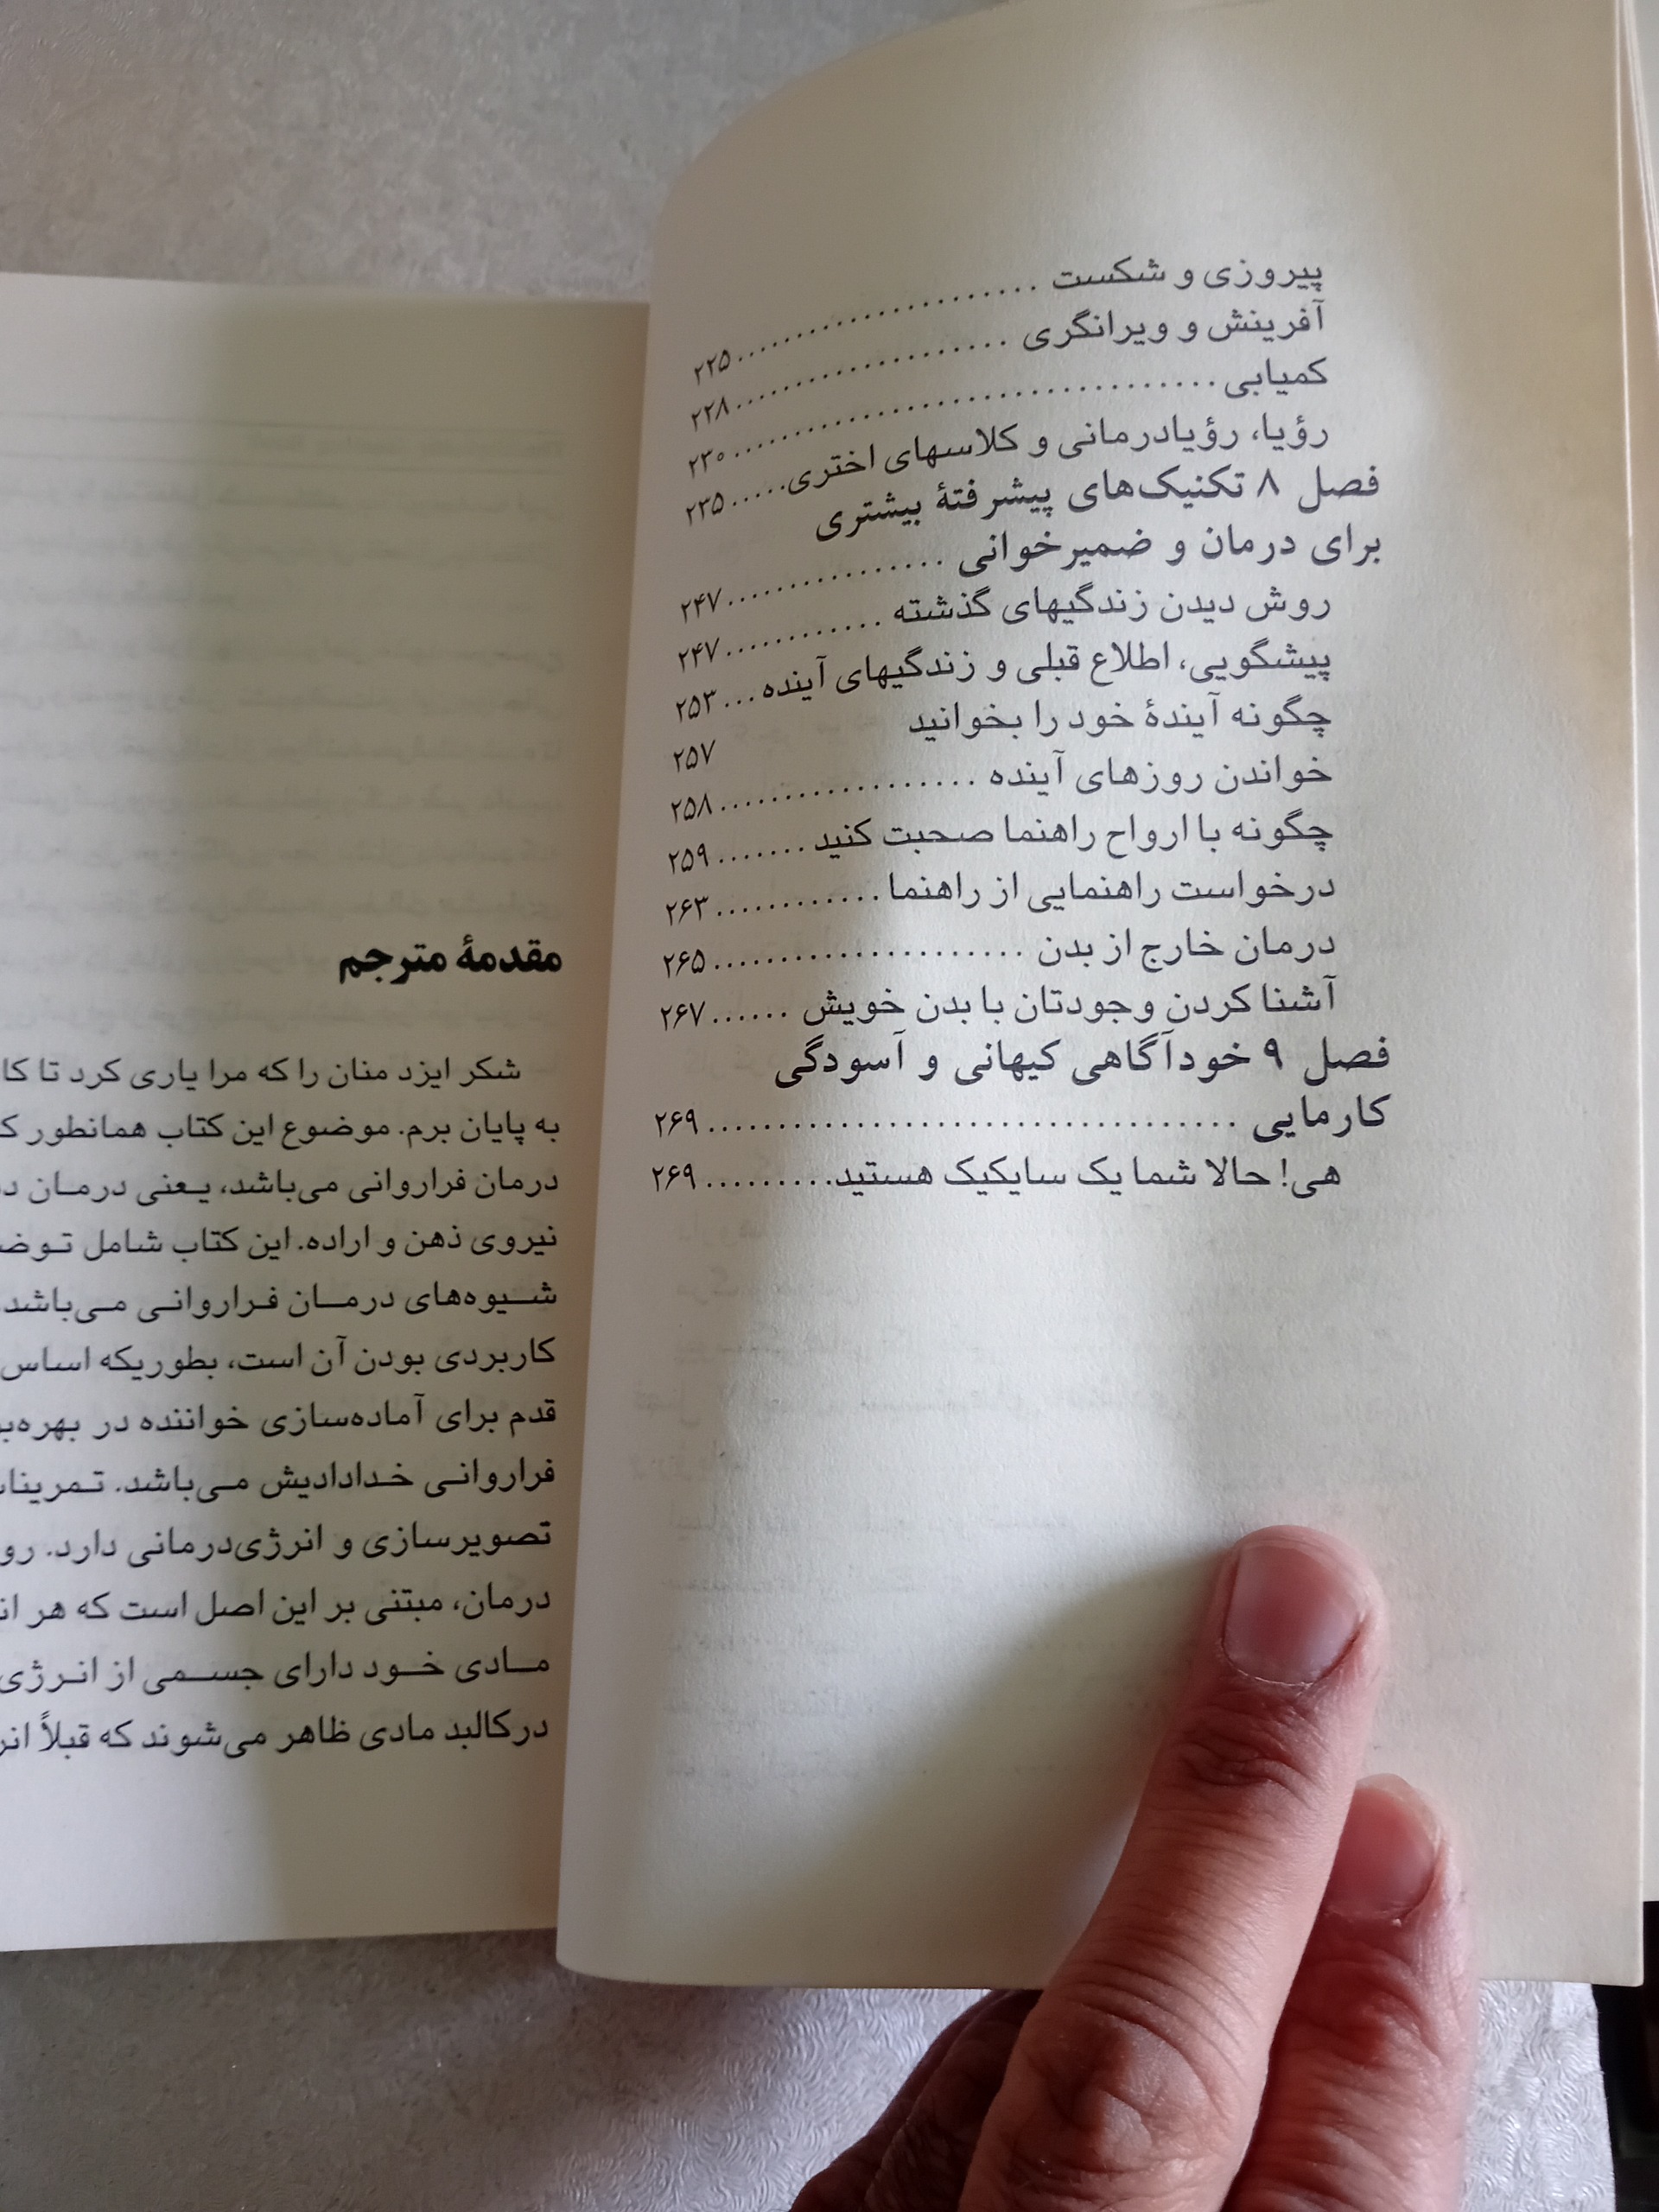 پیروزی و شکست ........................ ۲۲۵
آفرینش و ویرانگری ........................ ۲۲۸
کمیابی ........................ ۲۳۰
رؤیا، رؤیادرمانی و کلاسهای اختری..... ۲۳۵
فصل ۸ تکنیک‌های پیشرفتهٔ بیشتری
برای درمان و ضمیرخوانی ................ ۲۴۷
روش دیدن زندگیهای گذشته ............ ۲۴۷
پیشگویی، اطلاع قبلی و زندگیهای آینده ... ۲۵۳
چگونه آیندهٔ خود را بخوانید ۲۵۷
خواندن روزهای آینده .................... ۲۵۸
چگونه با ارواح راهنما صحبت کنید ....... ۲۵۹
درخواست راهنمایی از راهنما ............. ۲۶۳
درمان خارج از بدن ...................... ۲۶۵
آشنا کردن وجودتان با بدن خویش ...... ۲۶۷
فصل ۹ خودآگاهی کیهانی و آسودگی
کارمایی .................................. ۲۶۹
هی! حالا شما یک سایکیک هستید.......... ۲۶۹
مقدمهٔ مترجم
شکر ایزد منان را که مرا یاری کرد تا
به پایان برم. موضوع این کتاب همانطور
درمان فراروانی می‌باشد، یعنی درمان
نیروی ذهن و اراده. این کتاب شامل
شیوه‌های درمان فراروانی می‌باشد
کاربردی بودن آن است، بطوریکه اساس
قدم برای آماده‌سازی خواننده در
فراروانی خدادادیش می‌باشد.
تصویرسازی و انرژی‌درمانی دارد.
درمان، مبتنی بر این اصل است که هر
مادی خود دارای جسمی از انرژی
درکالبد مادی ظاهر می‌شوند که قبلاً